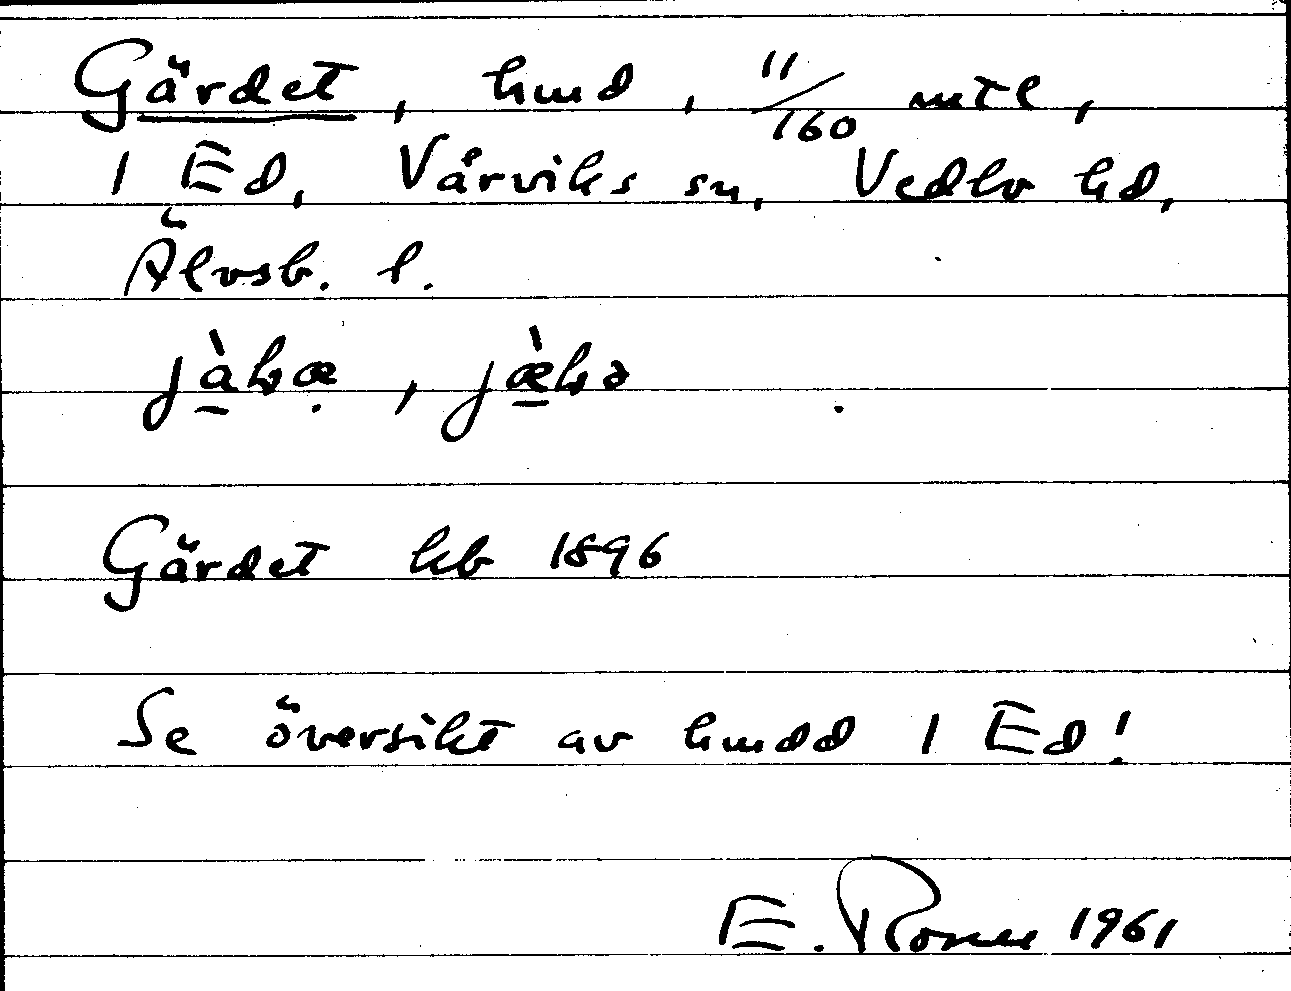 Gärdet, hmd, 11/160 mtl,
1 Ed, Vårviks sn, Vedbo hd,
Älvsb. l.
Gärdet kb 1896
Se översikt av hmdd 1 Ed!
E. 1961